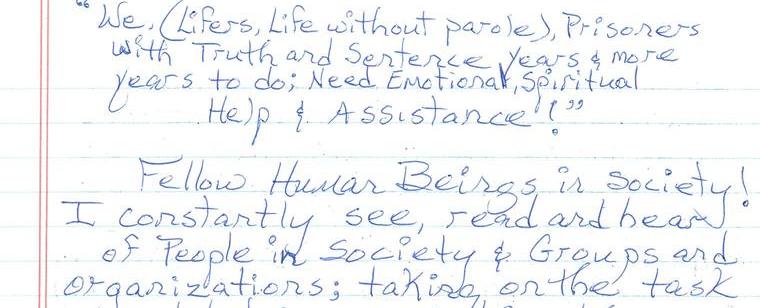 "We, (Lifers, Life without parole), Prisoners
with Truth and Sentence years & more
years to do; Need Emotional, Spiritual
Help & Assistance"!"
Fellow Human Beings in Society!
I constantly see, read and hear
of People in Society & Groups and
organizations; taking on the task